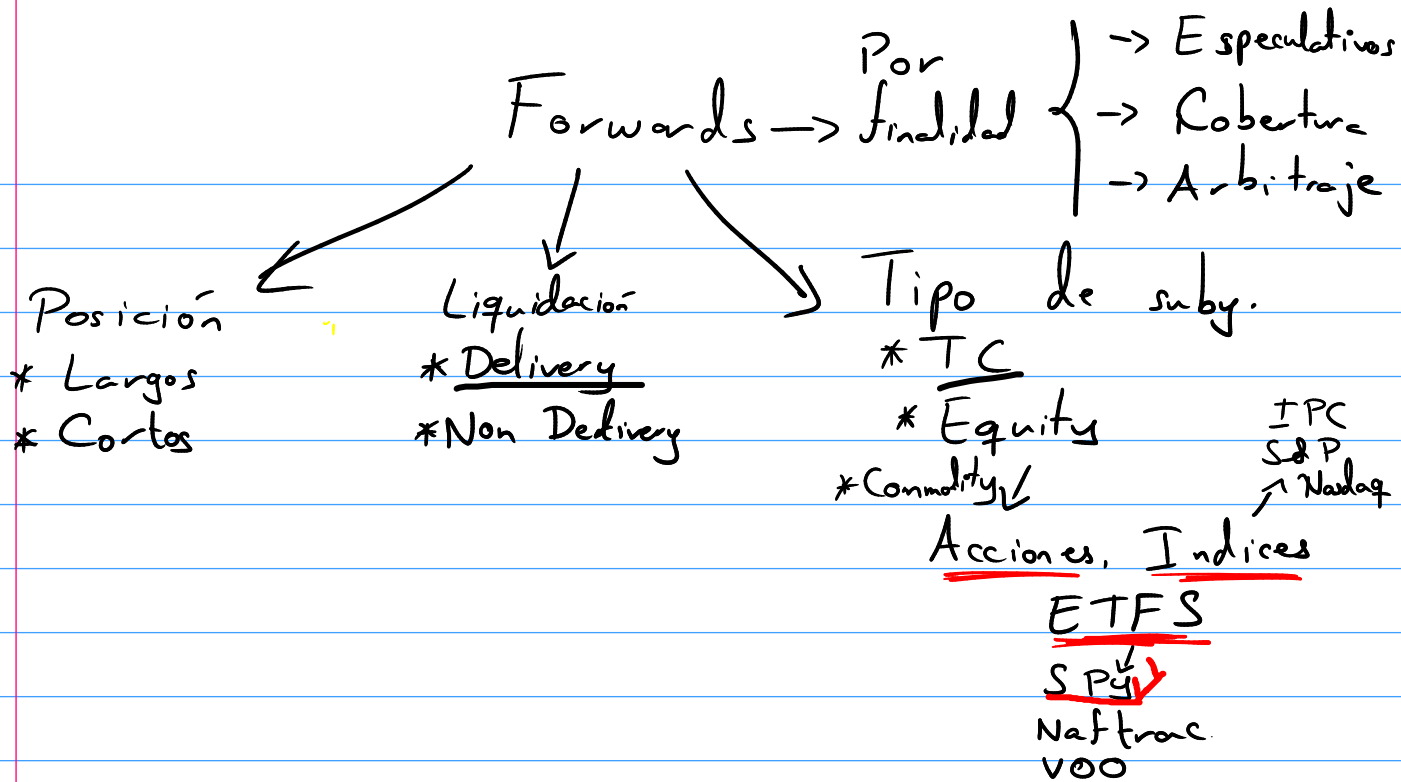 Forwards → Por finalidad
→ Especulativos
→ Cobertura
→ Arbitraje
Posición
* Largos
* Cortos
Liquidación
* Delivery
* Non Delivery
Tipo de suby.
* TC
* Equity
* Commodity
Acciones, Indices
IPC
S&P
Nasdaq
ETFS
SPY
Naftrac
VOO